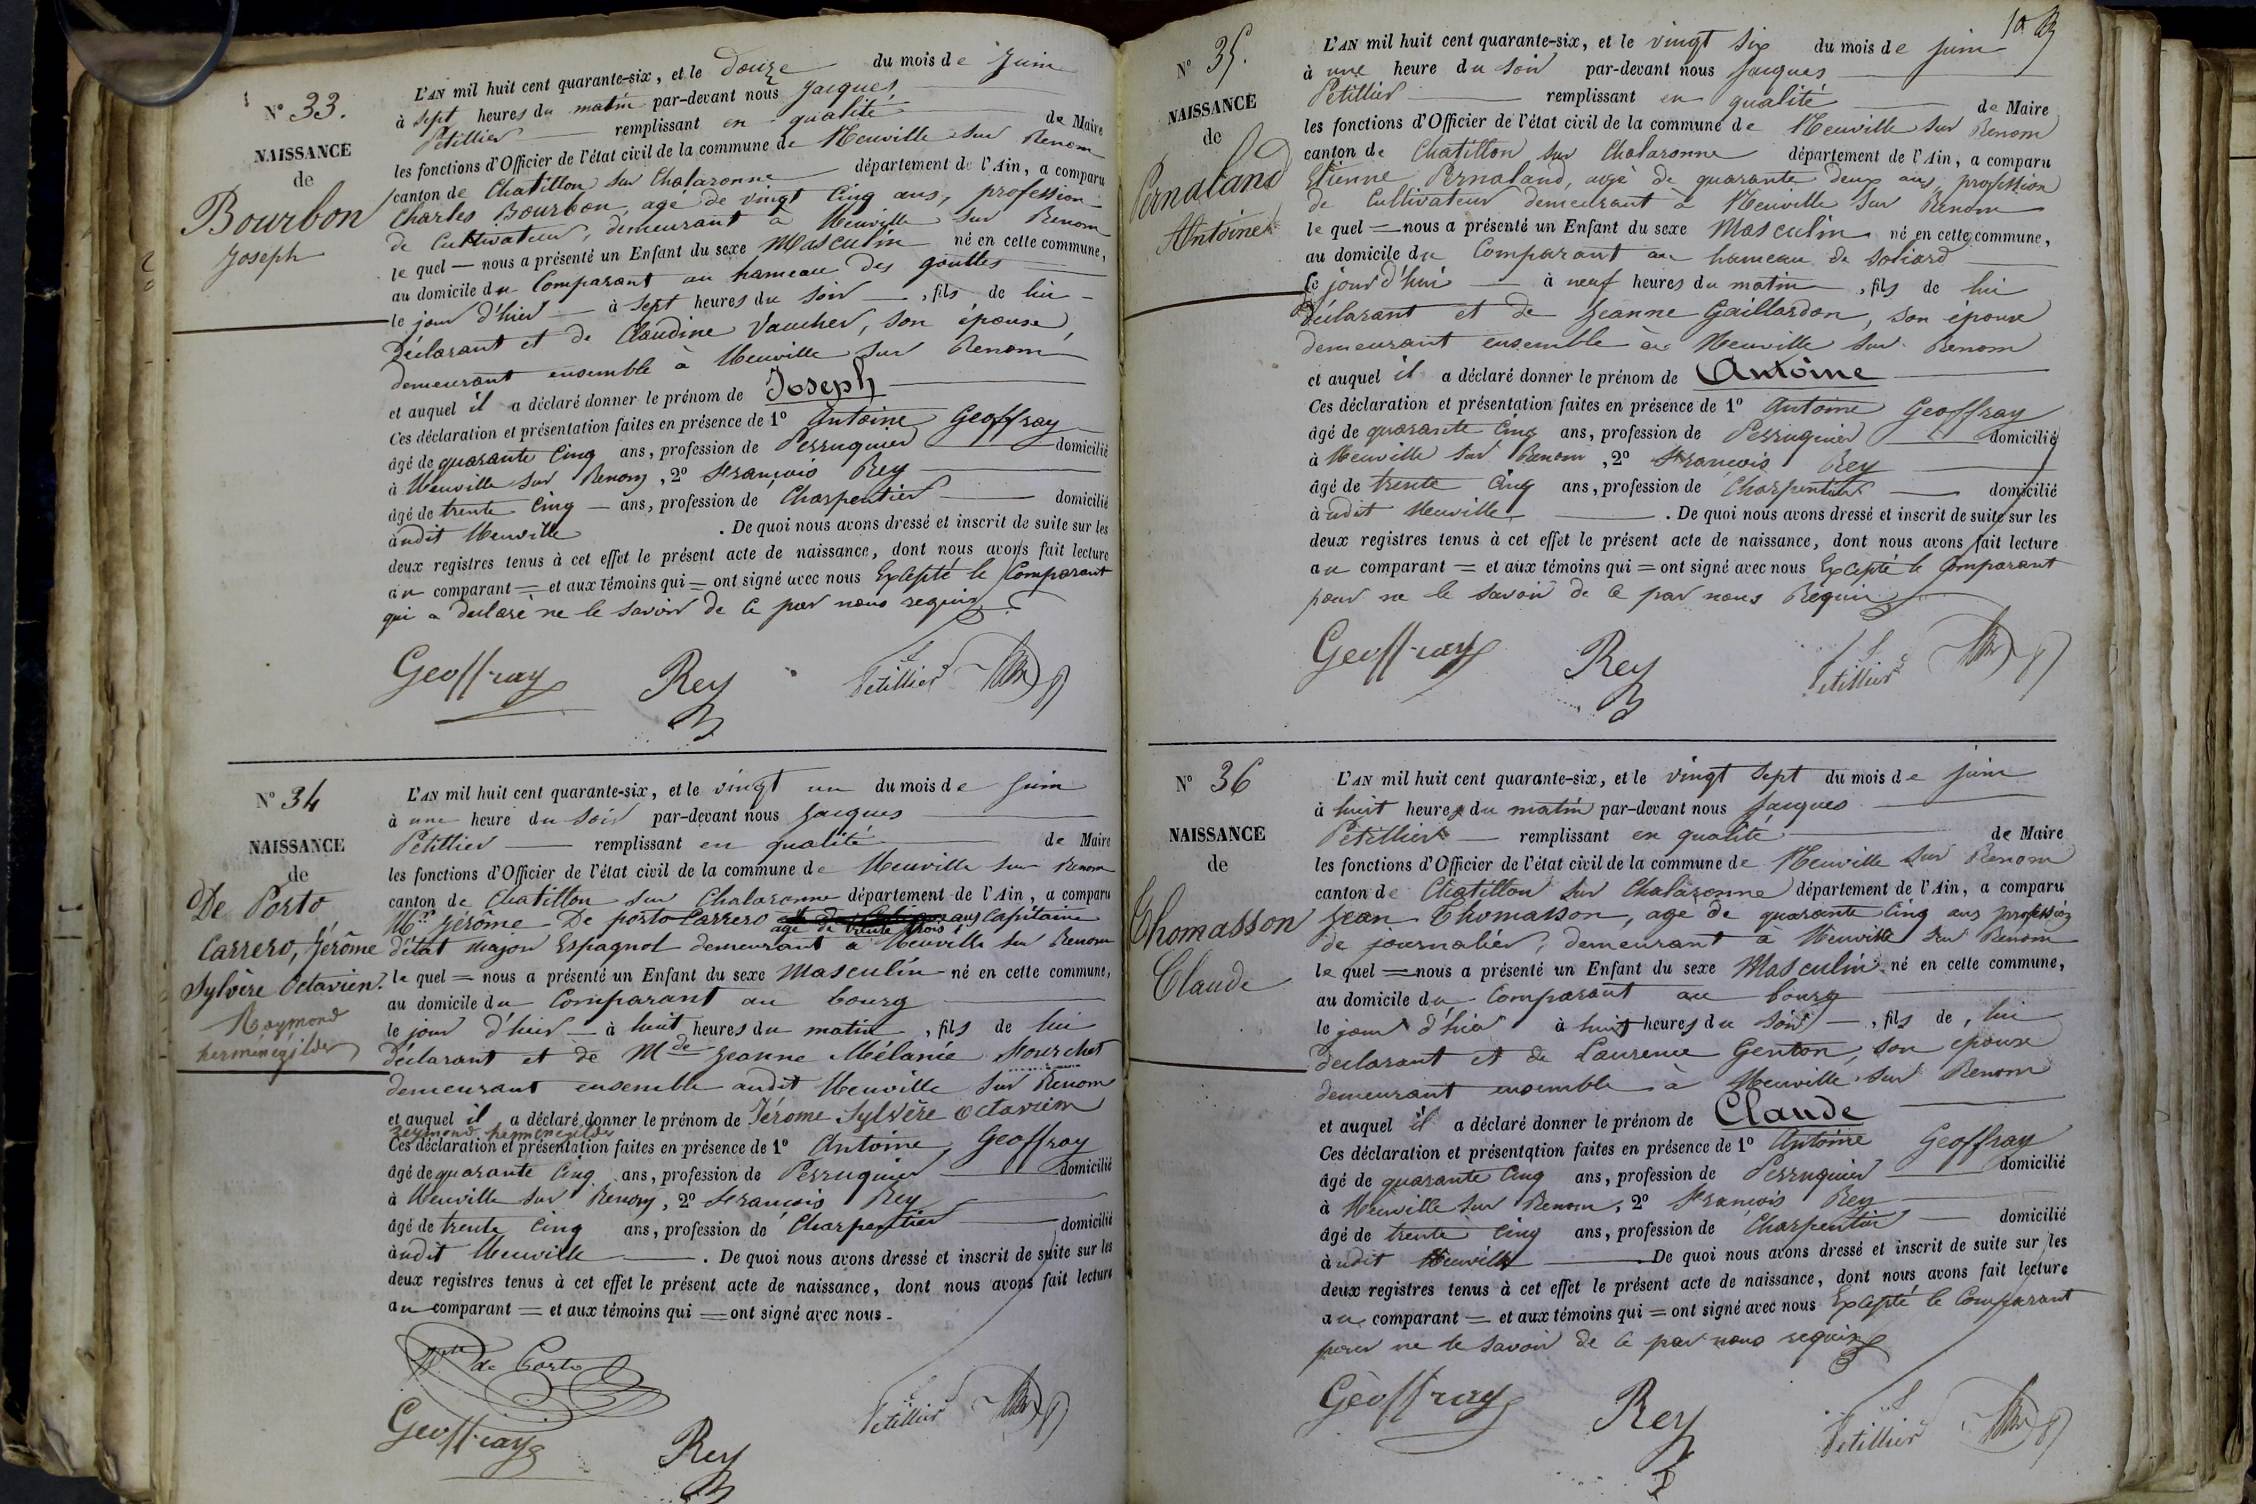 N° 33.
NAISSANCE
de
Bourbon
Joseph
L'AN mil huit cent quarante-six, et le douze du mois de Juin
à sept heures du matin par-devant nous Jacques
Petillier remplissant en qualité de Maire
les fonctions d'Officier de l'état civil de la commune de Neuville sur Renom
canton de Chatillon sur Chalaronne département de l'Ain, a comparu
Charles Bourbon, age de vingt Cinq ans, profession
de Cultivateur, demeurant à Neuville sur Renom
le quel — nous a présenté un Enfant du sexe Masculin né en cette commune,
au domicile du Comparant au hameau des gouttes
le jour d'hier — à sept heures du soir — , fils de lui —
Déclarant et de Claudine Vaucher, son épouse,
demeurant ensemble à Neuville sur Renom
et auquel il a déclaré donner le prénom de Joseph
Ces déclaration et présentation faites en présence de 1° Antoine Geoffray
âgé de quarante Cinq ans, profession de Perruquier domicilié
à Neuville sur Renom, 2° François Rey
âgé de trente Cinq — ans, profession de Charpentier domicilié
àudit Neuville . De quoi nous avons dressé et inscrit de suite sur les
deux registres tenus à cet effet le présent acte de naissance, dont nous avons fait lecture
au comparant = et aux témoins qui = ont signé avec nous Excepté le Comparant
qui a déclaré ne le savoir de ce par nous requis
Geoffray Rey Petillier
N° 34
NAISSANCE
de
De Porto
Carrero, Jérôme
Sylvère Octavien.
Raymond
herménégilde
L'AN mil huit cent quarante-six, et le vingt un du mois de Juin
à une heure du soir par-devant nous Jacques
Petillier remplissant en qualité de Maire
les fonctions d'Officier de l'état civil de la commune de Neuville sur Renom
canton de Chatillon sur Chalaronne département de l'Ain, a comparu
Mr Jérôme De porto Carrero agé de trente trois ans Capitaine
d'état major Espagnol demeurant à Neuville sur Renom
le quel = nous a présenté un Enfant du sexe Masculin né en cette commune,
au domicile du Comparant au bourg
le jour d'hier — à huit heures du matin , fils de lui
déclarant et de Mde Jeanne Mélanie
demeurant ensemble audit Neuville sur Renom
et auquel il a déclaré donner le prénom de Jérome Sylvère Octavien
reymond herménégilde
Ces déclaration et présentation faites en présence de 1° Antoine Geoffray
âgé de quarante Cinq ans, profession de Perruquier domicilié
à Neuville sur Renom, 2° François Rey
âgé de trente Cinq ans, profession de Charpentier domicilié
àudit Neuville . De quoi nous avons dressé et inscrit de suite sur les
deux registres tenus à cet effet le présent acte de naissance, dont nous avons fait lecture
au comparant = et aux témoins qui = ont signé avec nous -
de Porto
Geoffray Rey Petillier
N° 35.
NAISSANCE
de
Pernaland
Antoine
L'AN mil huit cent quarante-six, et le vingt six du mois de Juin
à une heure du soir par-devant nous Jacques
Petillier remplissant en qualité de Maire
les fonctions d'Officier de l'état civil de la commune de Neuville sur Renom
canton de Chatillon sur Chalaronne département de l'Ain, a comparu
Etienne Pernaland, agé de quarante deux ans, profession
de Cultivateur demeurant à Neuville sur Renom
le quel = nous a présenté un Enfant du sexe Masculin né en cette commune,
au domicile du Comparant au hameau de Soliard
Ce jourd'hui — à neuf heures du matin , fils de lui
déclarant et de Jeanne Gaillardon, son épouse
demeurant ensemble à Neuville sur Renom
et auquel il a déclaré donner le prénom de Antoine
Ces déclaration et présentation faites en présence de 1° Antoine Geoffray
âgé de quarante Cinq ans, profession de Perruquier domicilié
à Neuville sur Renom, 2° François Rey
âgé de trente Cinq ans, profession de Charpentier domicilié
àudit Neuville . De quoi nous avons dressé et inscrit de suite sur les
deux registres tenus à cet effet le présent acte de naissance, dont nous avons fait lecture
au comparant = et aux témoins qui = ont signé avec nous Excepté le Comparant
pour ne le savoir de ce par nous Requis
Geoffray Rey Petillier
N° 36
NAISSANCE
de
Thomasson
Claude
L'AN mil huit cent quarante-six, et le vingt sept du mois de juin
à huit heures du matin par-devant nous Jacques
Petillier — remplissant en qualité de Maire
les fonctions d'Officier de l'état civil de la commune de Neuville sur Renom
canton de Chatillon sur Chalaronne département de l'Ain, a comparu
Jean Thomasson, age de quarante Cinq ans profession
de journalier, demeurant à Neuville sur Renom
le quel = nous a présenté un Enfant du sexe Masculin né en cette commune,
au domicile du Comparant au bourg
le jour d'hier à huit heures du soir — , fils de , lui
déclarant et de Laurence Genton, son épouse
demeurant ensemble à Neuville sur Renom
et auquel il a déclaré donner le prénom de Claude
Ces déclaration et présentation faites en présence de 1° Antoine Geoffray
âgé de quarante Cinq ans, profession de Perruquier domicilié
à Neuville sur Renom, 2° François Rey
âgé de trente Cinq ans, profession de Charpentier domicilié
àudit Neuville . De quoi nous avons dressé et inscrit de suite sur les
deux registres tenus à cet effet le présent acte de naissance, dont nous avons fait lecture
au comparant = et aux témoins qui = ont signé avec nous Excepté le Comparant
pour ne le savoir de ce par nous requis
Geoffray Rey Petillier